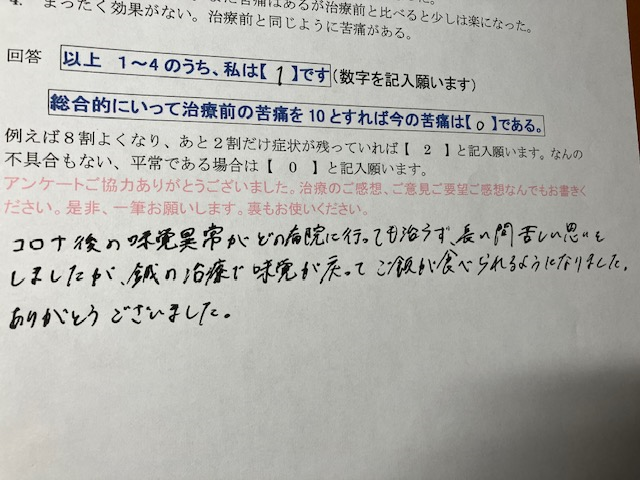 4. まったく効果がない。治療前と同じように苦痛がある。
回答 以上 1～4のうち、私は【 1 】です(数字を記入願います)
総合的にいって治療前の苦痛を10とすれば今の苦痛は【 0 】である。
例えば8割よくなり、あと2割だけ症状が残っていれば【 2 】と記入願います。なんの
不具合もない、平常である場合は【 0 】と記入願います。
アンケートご協力ありがとうございました。治療のご感想、ご意見ご要望ご感想なんでもお書きく
ださい。是非、一筆お願いします。裏もお使いください。
コロナ後の味覚異常がどの病院に行っても治らず、長い間苦しい思いを
しましたが、鍼の治療で味覚が戻ってご飯が食べられるようになりました。
ありがとうございました。